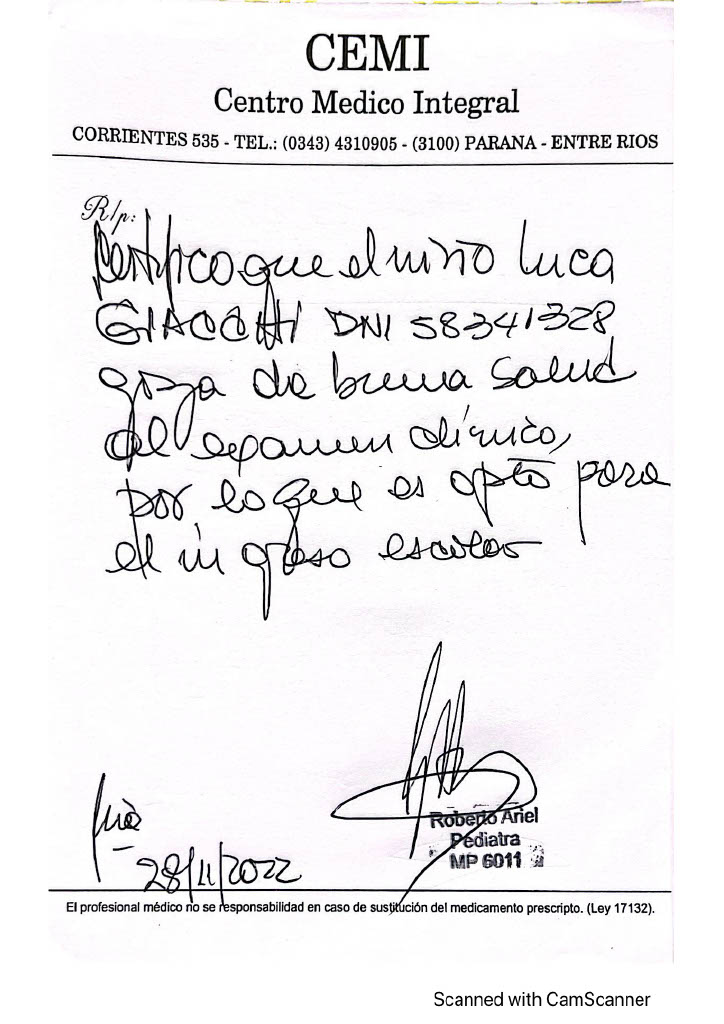 CEMI
Centro Medico Integral
CORRIENTES 535 - TEL.: (0343) 4310905 - (3100) PARANA - ENTRE RIOS
R/p:
Certifico que el niño Luca
GIACCHI DNI 58341328
goza de buena salud
al examen clínico,
por lo que es apto para
el ingreso escolar
28/11/2022
Roberto Ariel
Pediatra
MP 6011
El profesional médico no se responsabilidad en caso de sustitución del medicamento prescripto. (Ley 17132).
Scanned with CamScanner